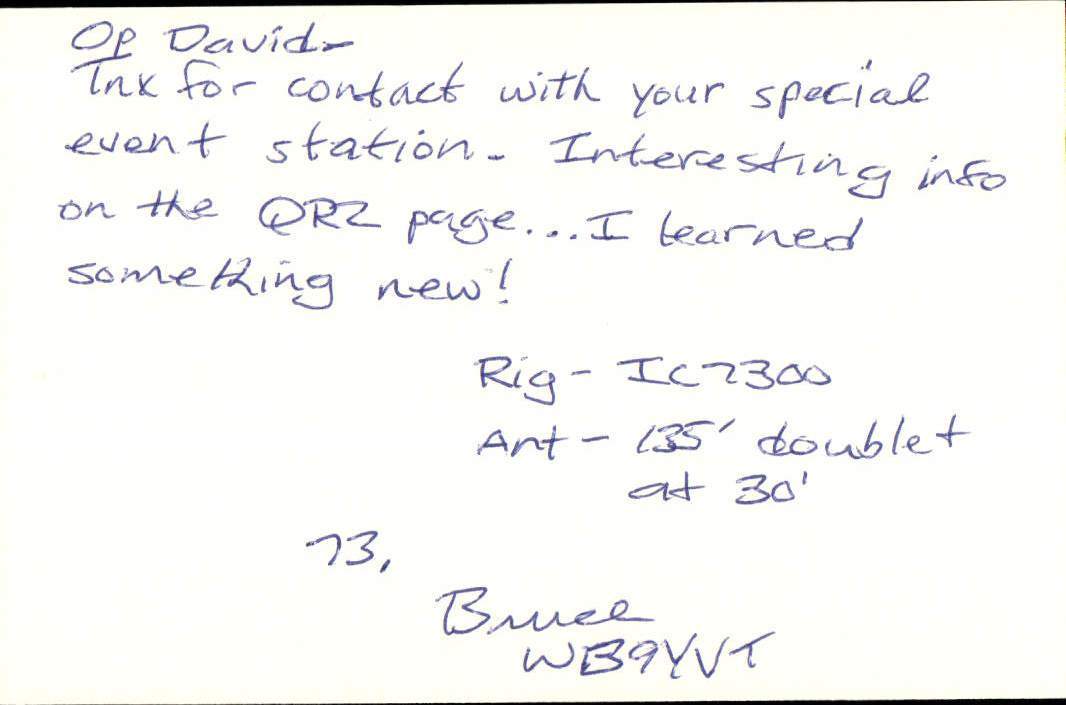 Op David-
Tnx for contact with your special
event station. Interesting info
on the QRZ page...I learned
something new!
Rig - IC7300
Ant - 135' doublet
at 30'
73,
Bruce
WB9YVT